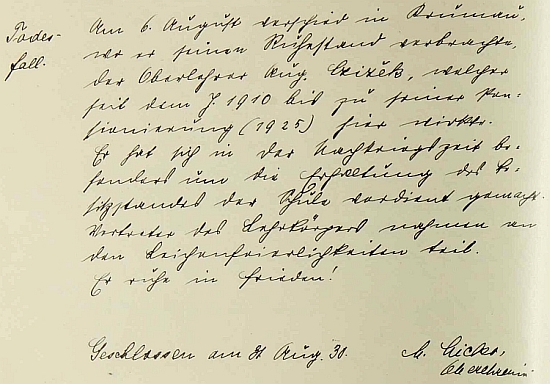 Todes-
fall.
Am 6. August verschied in Krumau,
wo er seinen Ruhestand verbrachte,
der Oberlehrer Aug. Cizek, welcher
seit dem J. 1910 bis zu seiner Pen-
sionierung (1925) hier wirkte.
Er hat sich in der Nachkriegszeit be-
sonders um die Erhaltung des Be-
sitzstandes der Schule verdient gemacht.
Vertreter des Lehrkörpers nahmen an
den Leichenfeierlichkeiten teil.
Er ruhe in Frieden!
Geschlossen am 31 Aug. 30.